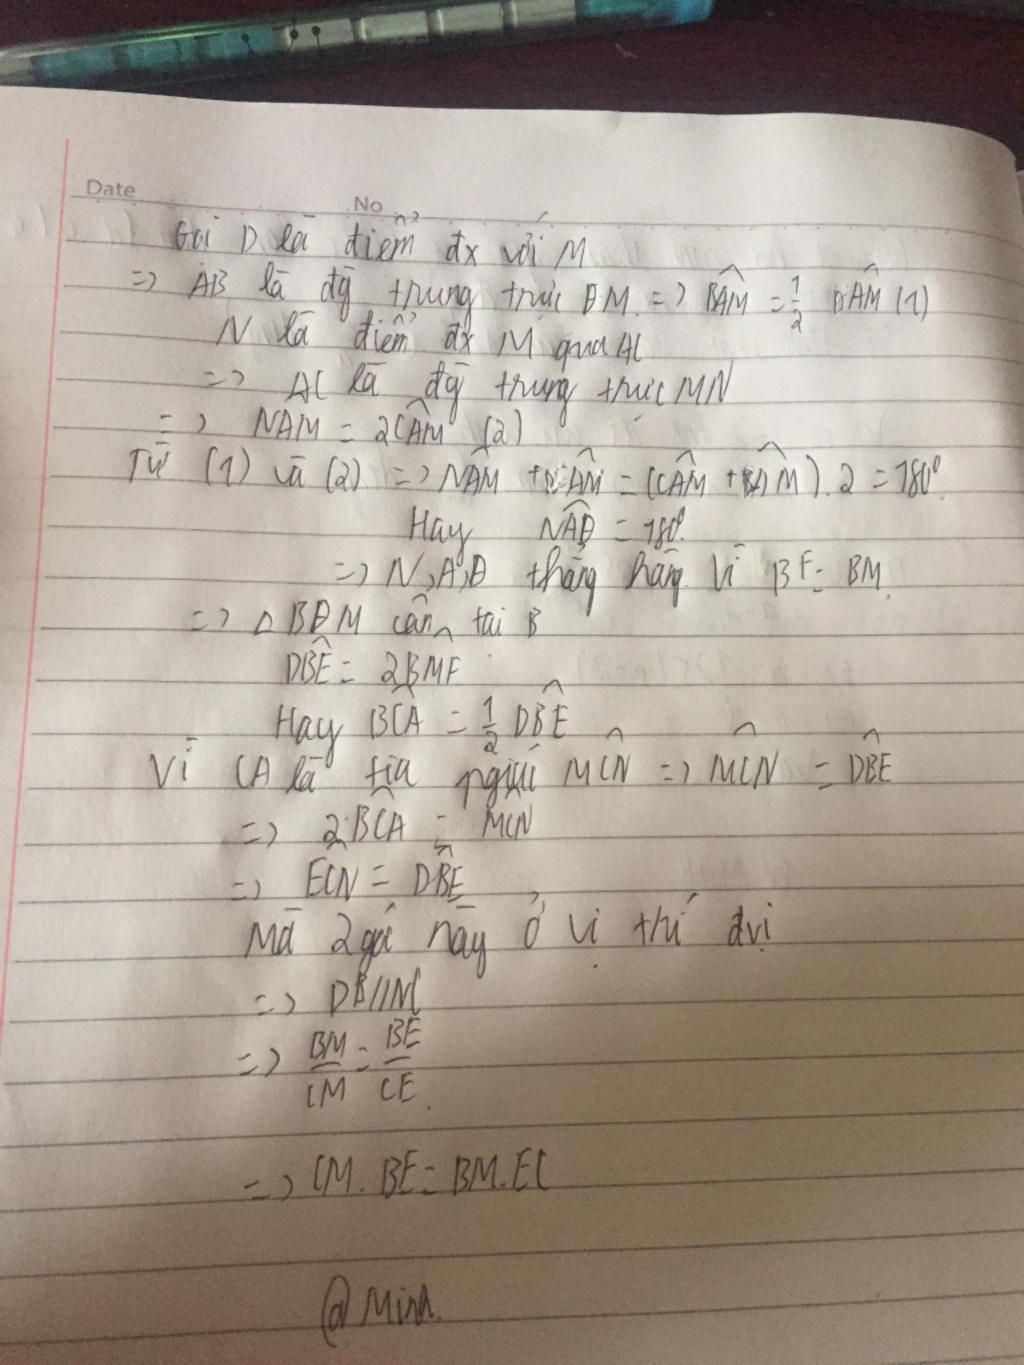 Date
No
Gọi D là điểm đx với M
=> AB là đg trung trực DM => BÂM = 1/2 DÂM (1)
N là điểm đx M qua AC
=> AC là đg trung trực MN
=> NAM = 2CÂM (2)
Từ (1) và (2) => NÂM + DÂM = (CÂM + BÂM). 2 = 180°
Hay NÂD = 180°
=> N, A, D thẳng hàng Vì BF = BM
=> △ BDM cân tại B
DB̂E = 2BMF
Hay BĈA = 1/2 DB̂E
Vì CA là tia pgiác MĈN => MĈN = DB̂E
=> 2BĈA = MCN
=> ECN = DB̂E
Mà 2 góc này ở vị thí đvị
=> DB//NC
=> BM/CM = BE/CE
=> CM. BE = BM. EC
@Minh.